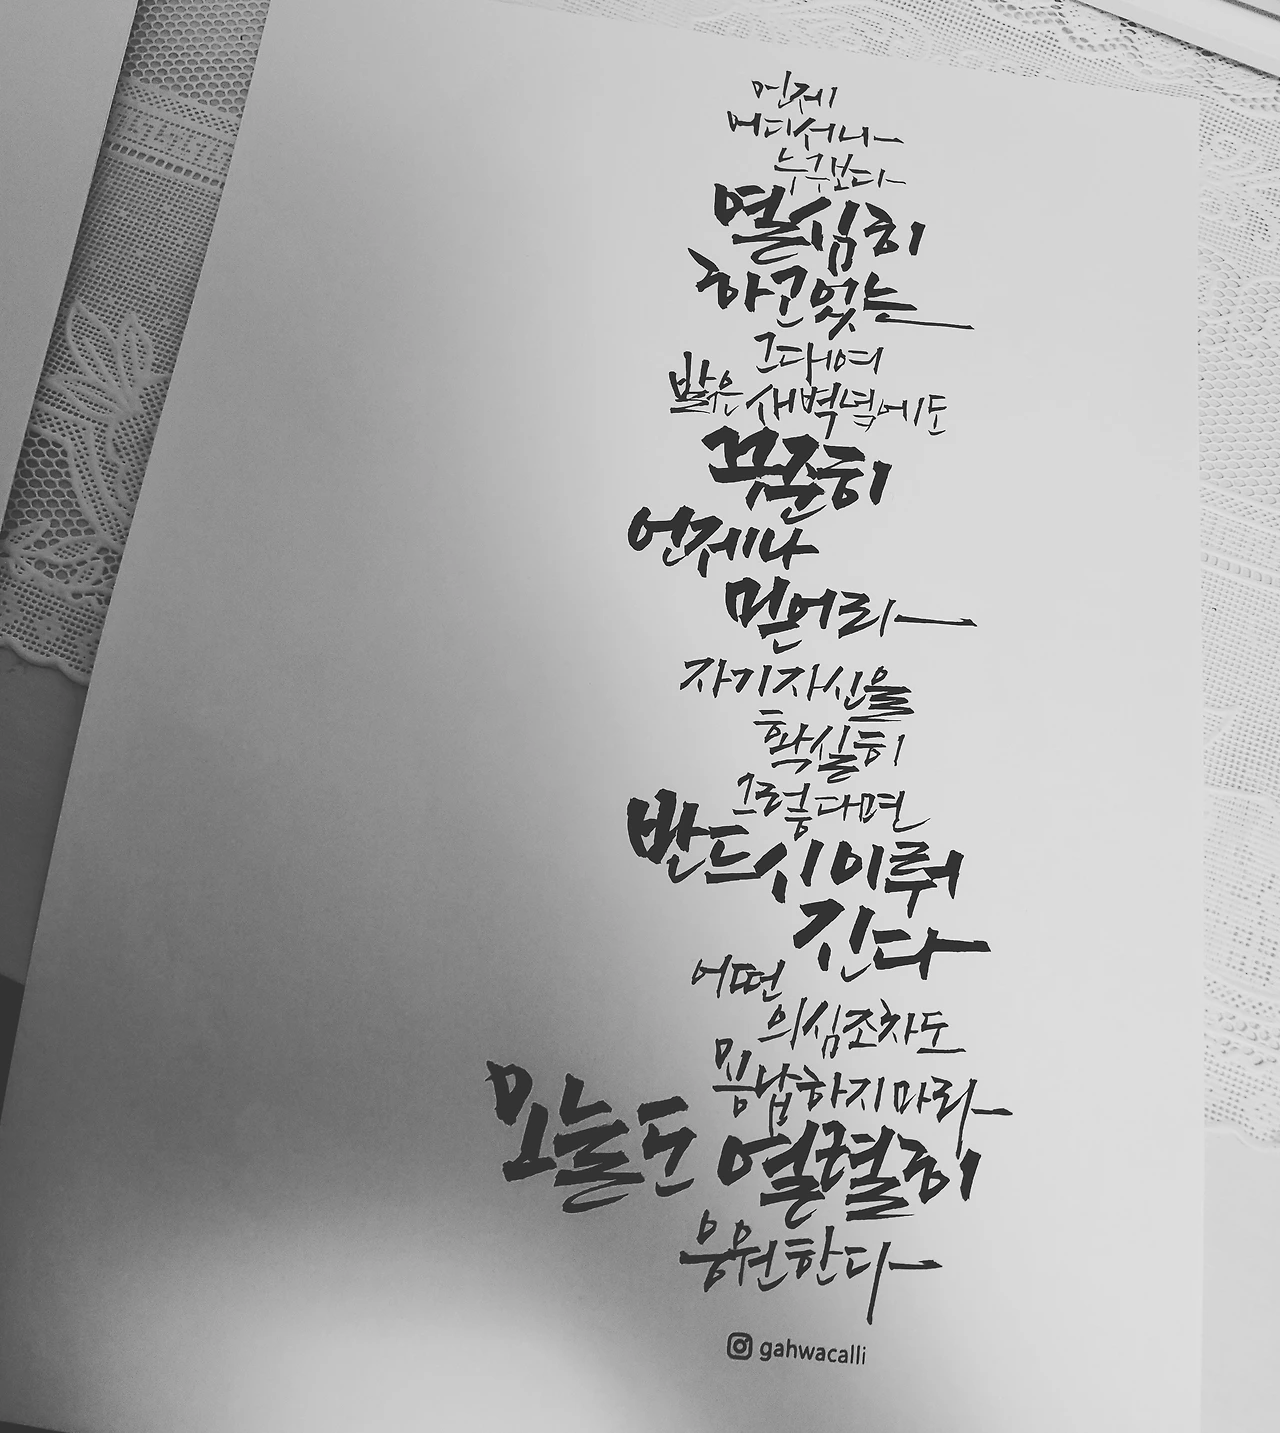 언제
어디서나
누구보다
열심히
하고있는
그대여
밝은 새벽녘에도
꾸준히
언제나
믿어라
자기자신을
확실히
그렇다면
반드시이뤄
진다
어떤
의심조차도
응답하지마라
오늘도 열렬히
응원한다
gahwacalli